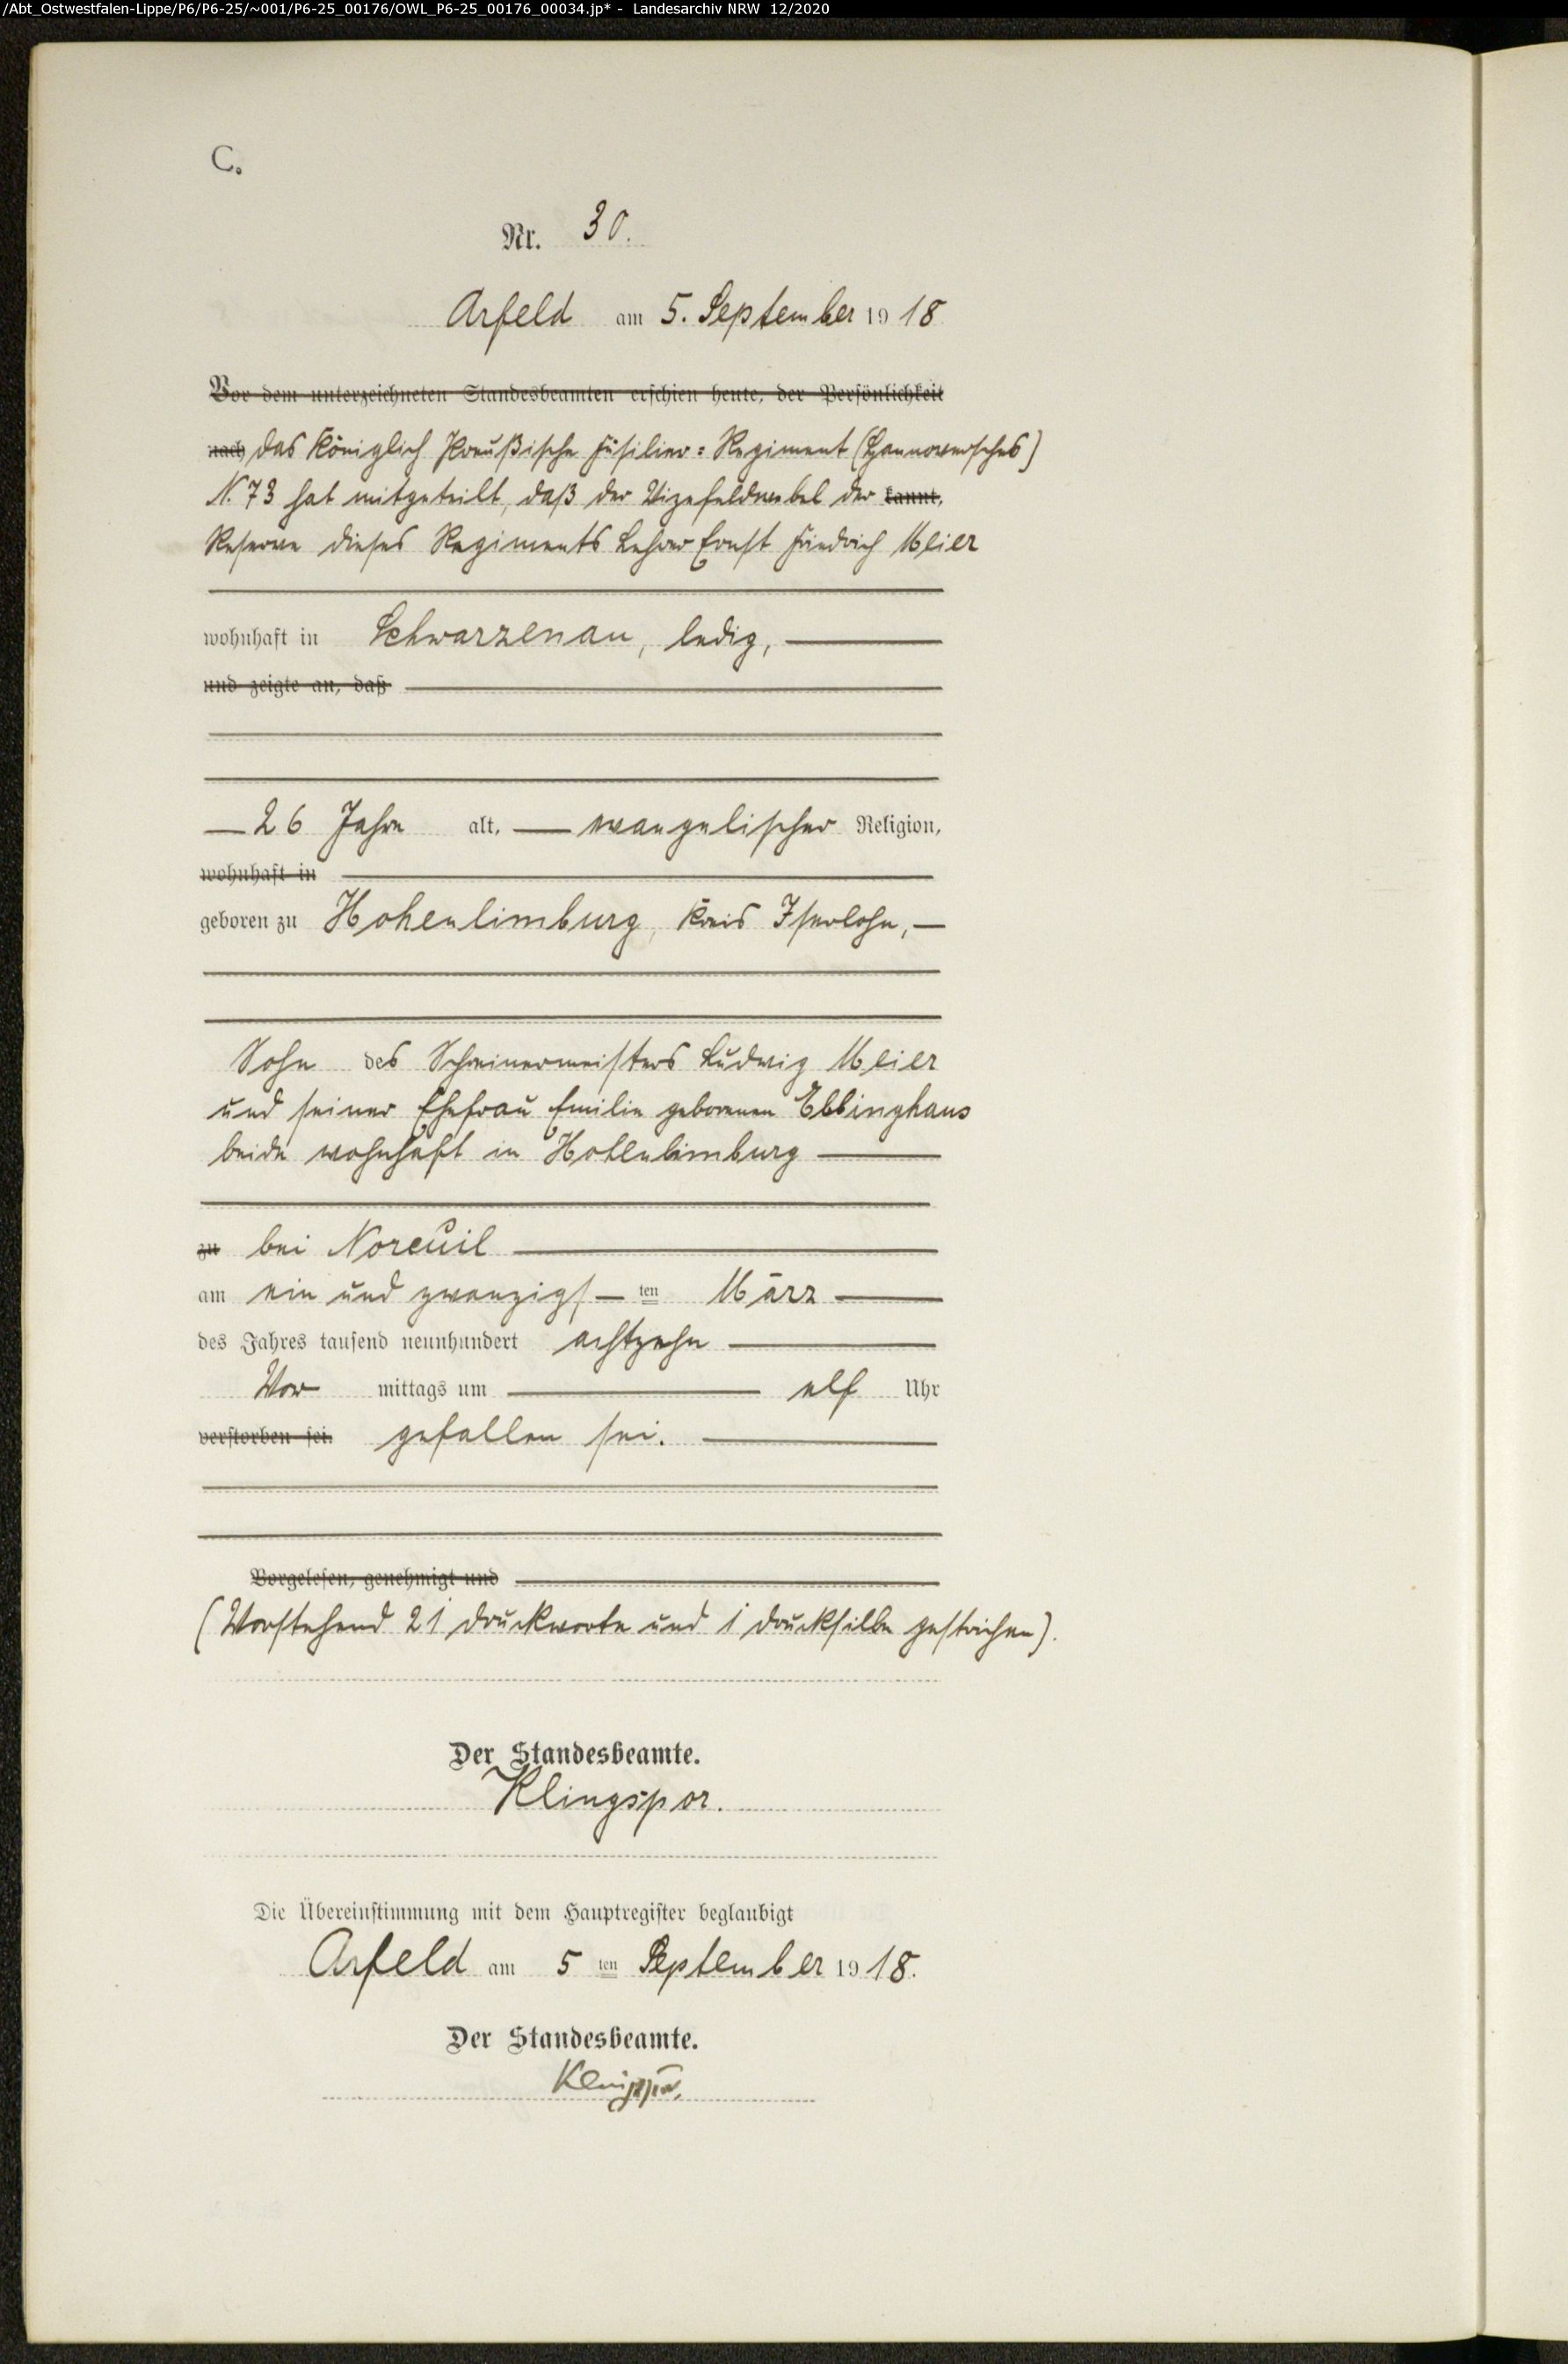 /Abt_Ostwestfalen-Lippe/P6/P6-25/~001/P6-25_00176/OWL_P6-25_00176_00034.jp* - Landesarchiv NRW 12/2020
C.
Nr. 30.
Arfeld am 5. September 1918
Vor dem unterzeichneten Standesbeamten erschien heute, der Persönlichkeit
nach das Königlich Preußische Füsilier=Regiment (Hannoversches)
N. 73 hat mitgeteilt, daß der Vizefeldwebel der kannt,
Reserve dieses Regiments Lehrer Ernst Friedrich Meier
wohnhaft in Schwarzenau, ledig,
und zeigte an, daß
26 Jahre alt, evangelischer Religion,
wohnhaft in
geboren zu Hohenlimburg, Kreis Iserlohn,
Sohn des Schreinermeisters Ludwig Meier
und seiner Ehefrau Emilie geborenen Ebbinghaus
beide wohnhaft in Hohenlimburg
zu bei Noreuil
am ein und zwanzigs ten März
des Jahres tausend neunhundert achtzehn
Vor mittags um elf Uhr
verstorben sei. gefallen sei.
Vorgelesen, genehmigt und
(Vorstehend 21 Druckworte und 1 Drucksilbe gestrichen).
Der Standesbeamte.
Klingspor.
Die Übereinstimmung mit dem Hauptregister beglaubigt
Arfeld am 5 ten September 1918.
Der Standesbeamte.
Klingspor.